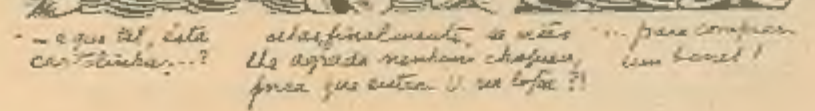 — e que tal, esta
cartolinha...?
Mas, finalmente, se não
lhe agrada nenhum chapeu,
para que entra V. na loja?!
... para comprar
um bonet!